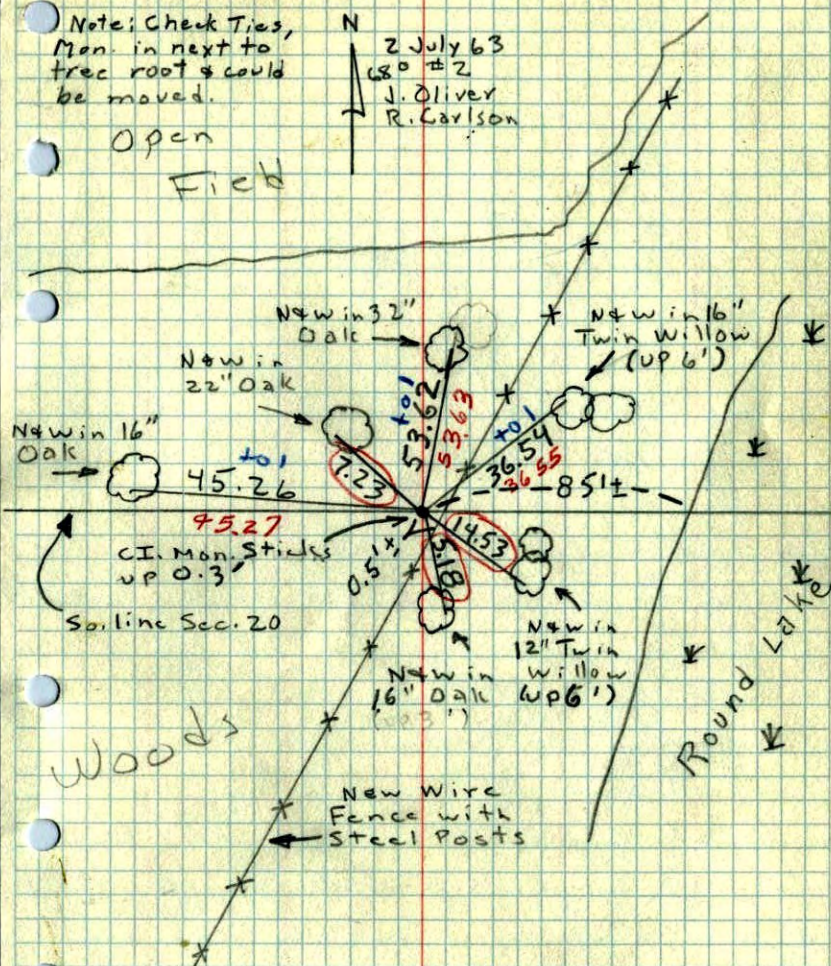 Note: Check Ties,
Mon. in next to
tree root & could
be moved.
N
2 July 63
68° #2
J. Oliver
R. Carlson
Open
Field
N&W in 32"
Oak
N&W in 16"
Twin Willow
(UP 6')
N&W in
22" Oak
N&W in 16"
Oak
+01
45.26
45.27
7.23
+01
53.62
53.63
+01
36.54
36.55
851±
14.53
5.18
0.5'
C.I. Mon. Sticks
up 0.3'
So. line Sec. 20
N&W in
12" Twin
Willow
(UP 6')
N&W in
16" Oak
(up 3')
Round Lake
Woods
New Wire
Fence with
Steel Posts